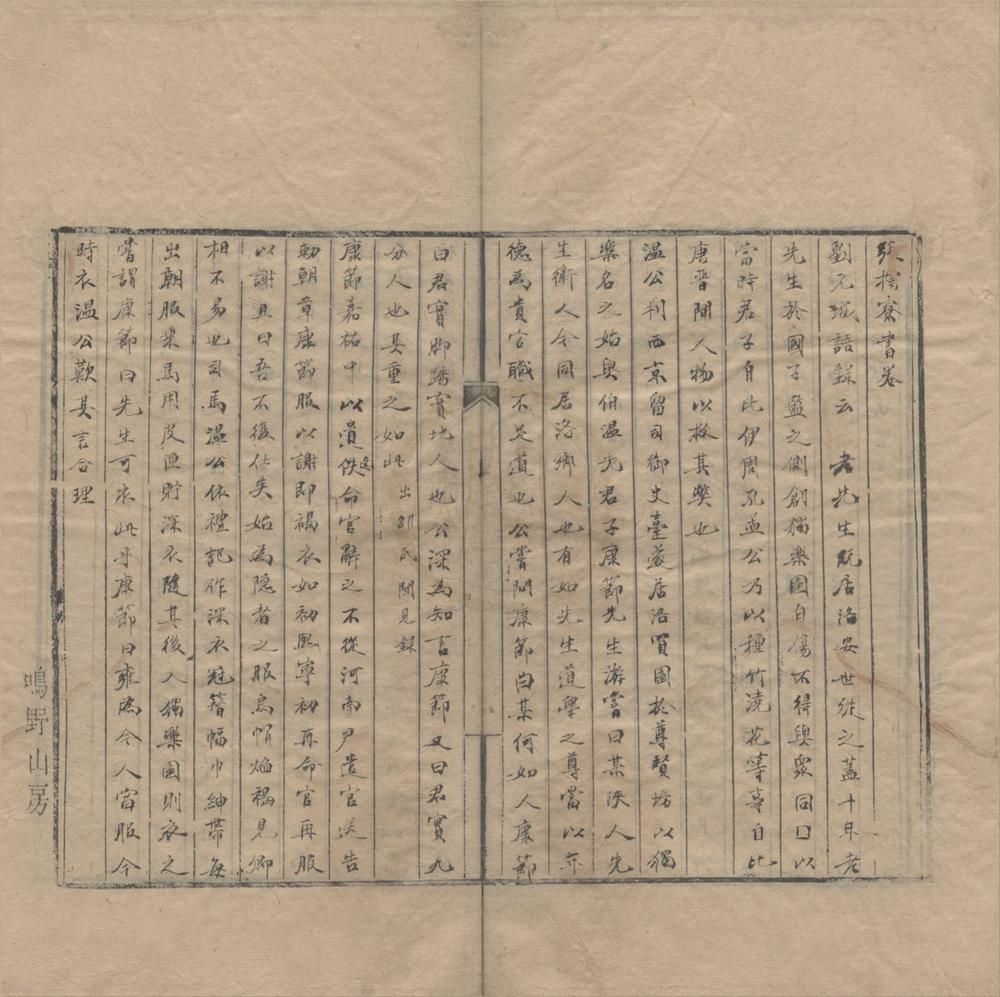 張撝寮書卷
劉元城語錄云　老先生既居洛安世從之蓋十年老
先生於國子監之側創獨樂園自傷不得與衆同囗以
當時君子自比伊周孔孟公乃以種竹澆花等事自比
唐晉間人物以救其弊也
溫公判西京留司御史臺遂居洛買園於尊賢坊以獨
樂名之始與伯溫先君子康節先生游嘗曰某陜人先
生衛人今同居洛鄉人也有如先生道學之尊當以年
德為貴官職不足道也公嘗問康節曰某何如人康節
曰君實脚踏實地人也公深為知言康節又曰君實九
分人也其重之如此　出邵氏聞見錄
康節嘉祐中以遺佚命官辭之不從河南尹遣官送告
勅朝章康節服以謝即褐衣如初熙寧初再命官再服
以謝且曰吾不復仕矣始為隱者之服烏帽縚褐見卿
相不易也司馬溫公依禮記作深衣冠簪幅巾紳帶每
出朝服乗馬用皮匣貯深衣隨其後入獨樂園則衣之
嘗謂康節曰先生可衣此乎康節曰雍為今人當服今
時衣溫公歎其言合理
鳴野山房